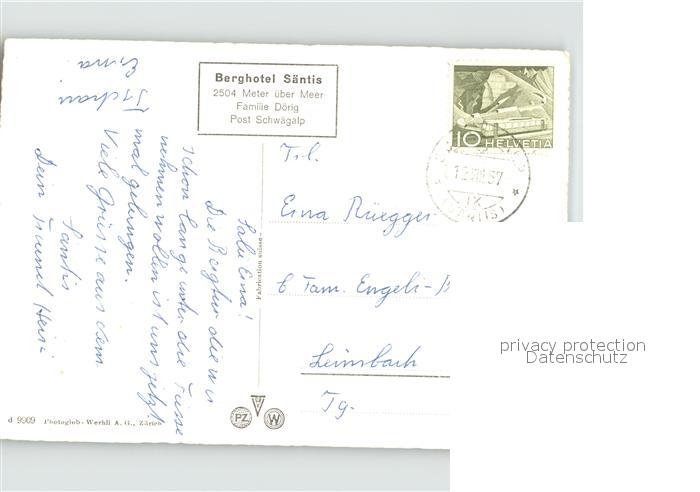 Berghotel Säntis
2504 Meter über Meer
Familie Dörig
Post Schwägalp
10 HELVETIA
Salü Erna!
Die Bergtur die wir
schon lange unter die Füsse
nehmen wollen ist uns jetzt
mal gelungen.
Viele Grüsse aus dem
Säntis
Dein Freund Heiri
Tschau
Erna
Frl.
Erna Rüegger
b Fam. Engeli-B
Leimbach
Tg.
Fabrication suisse
PZ
W
d 9909 Photoglob-Wehrli A. G., Zürich
privacy protection
Datenschutz